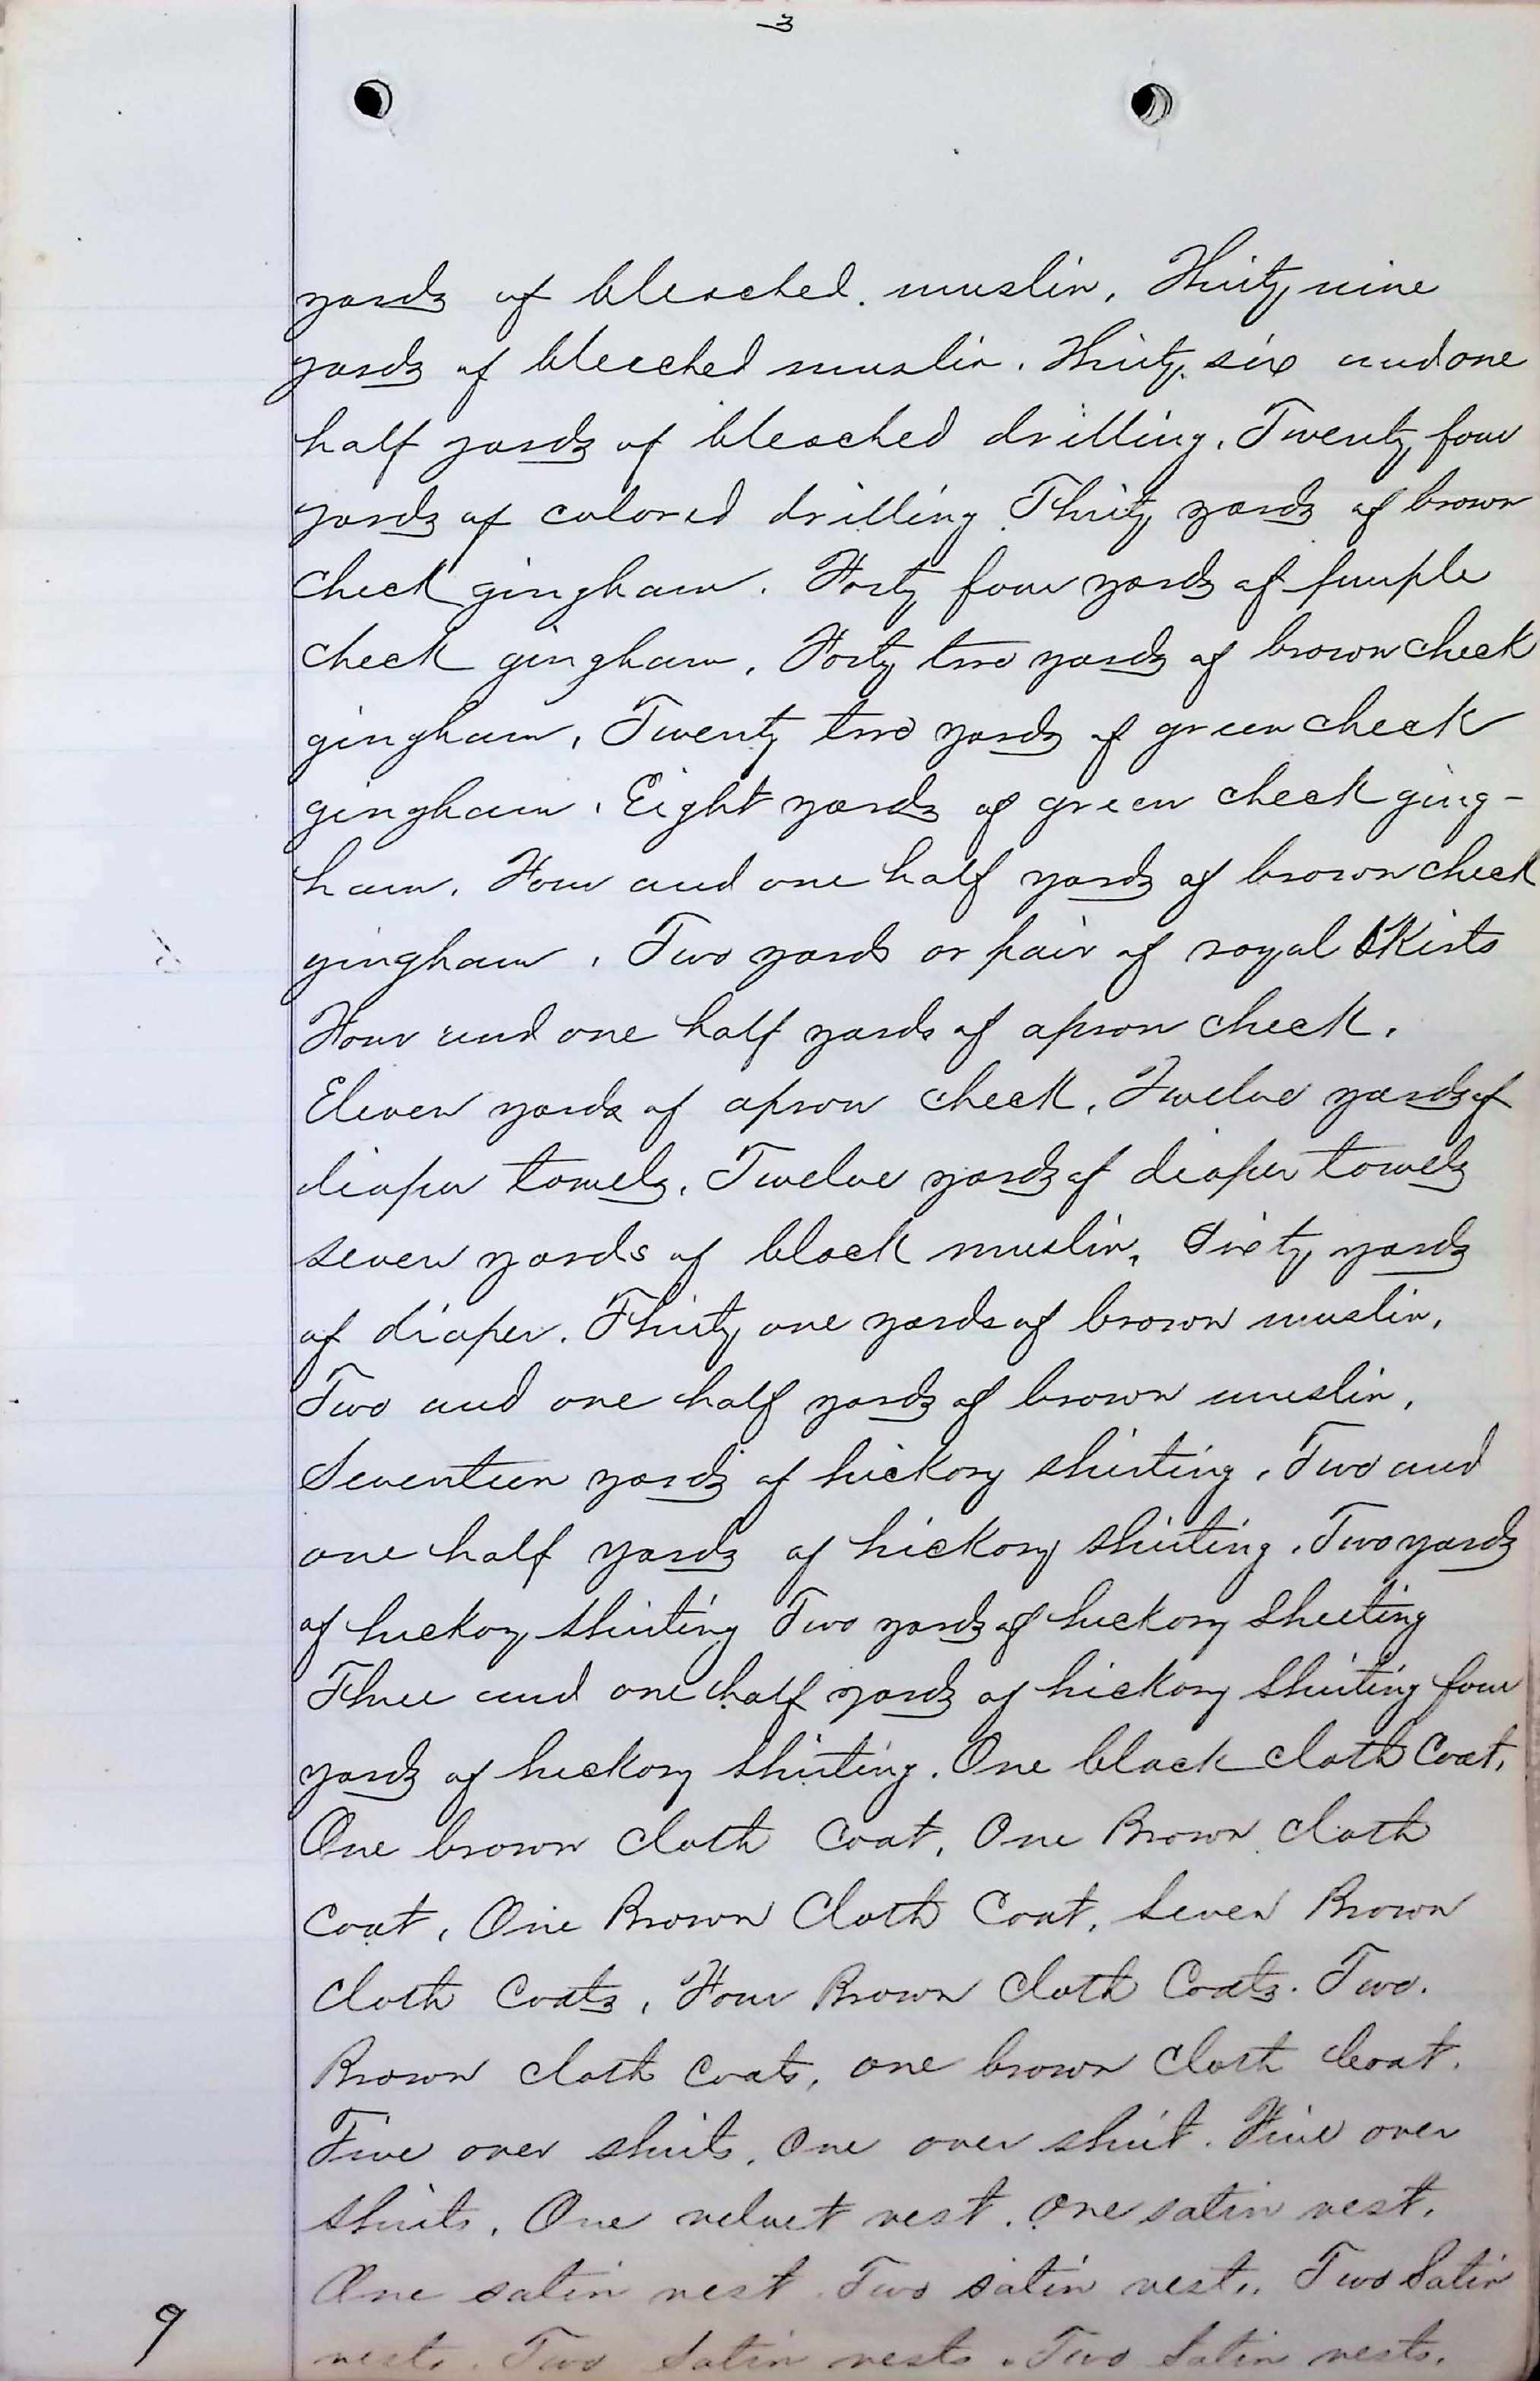 3
yards of bleached. muslin, Thirty nine
yards of bleeched muslin. Thirty six and one
half yards of bleached drilling. Twenty four
yards of colored drilling. Thirty yards of brown
check gingham. Forty four yards of purple
check gingham, Forty two yards of brown check
gingham, Twenty two yards of green check
gingham. Eight yards of green check ging-
ham. Four and one half yards of brown check
gingham, Two yards or pair of royal skirts
Four and one half yards of apron check.
Eleven yards of apron check, Twelve yards of
diaper towels, Twelve yards of diaper towels
seven yards of black muslin, Sixty yards
of diaper. Thirty one yards of brown muslin.
Two and one half yards of brown muslin,
Seventeen yards of hickory shirting, Two and
one half yards of hickory shirting. Two yards
of hickory shirting Two yards of hickory sheeting
Three and one half yards of hickory shirting four
yards of hickory shirting. One black cloth Coat.
One brown cloth Coat, One Brown cloth
Coat, One Brown Cloth Coat, Seven Brown
cloth Coats, Four Brown Cloth Coats. Two.
Brown cloth Coats, one brown Cloth Coat.
Five over shirts, One over shirt. Five over
shirts, One velvet vest. One satin vest.
One satin vest. Two satin vests. Two Satin
vests. Two Satin vests. Two Satin vests.
9